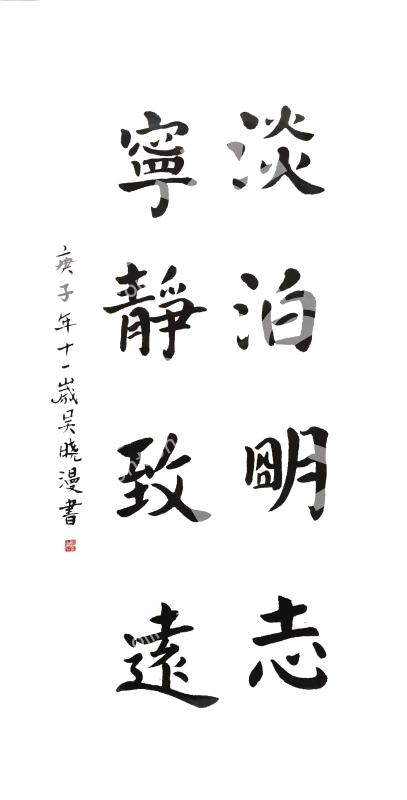 淡泊明志
寧靜致遠
庚子年十一歲吴曉漫書